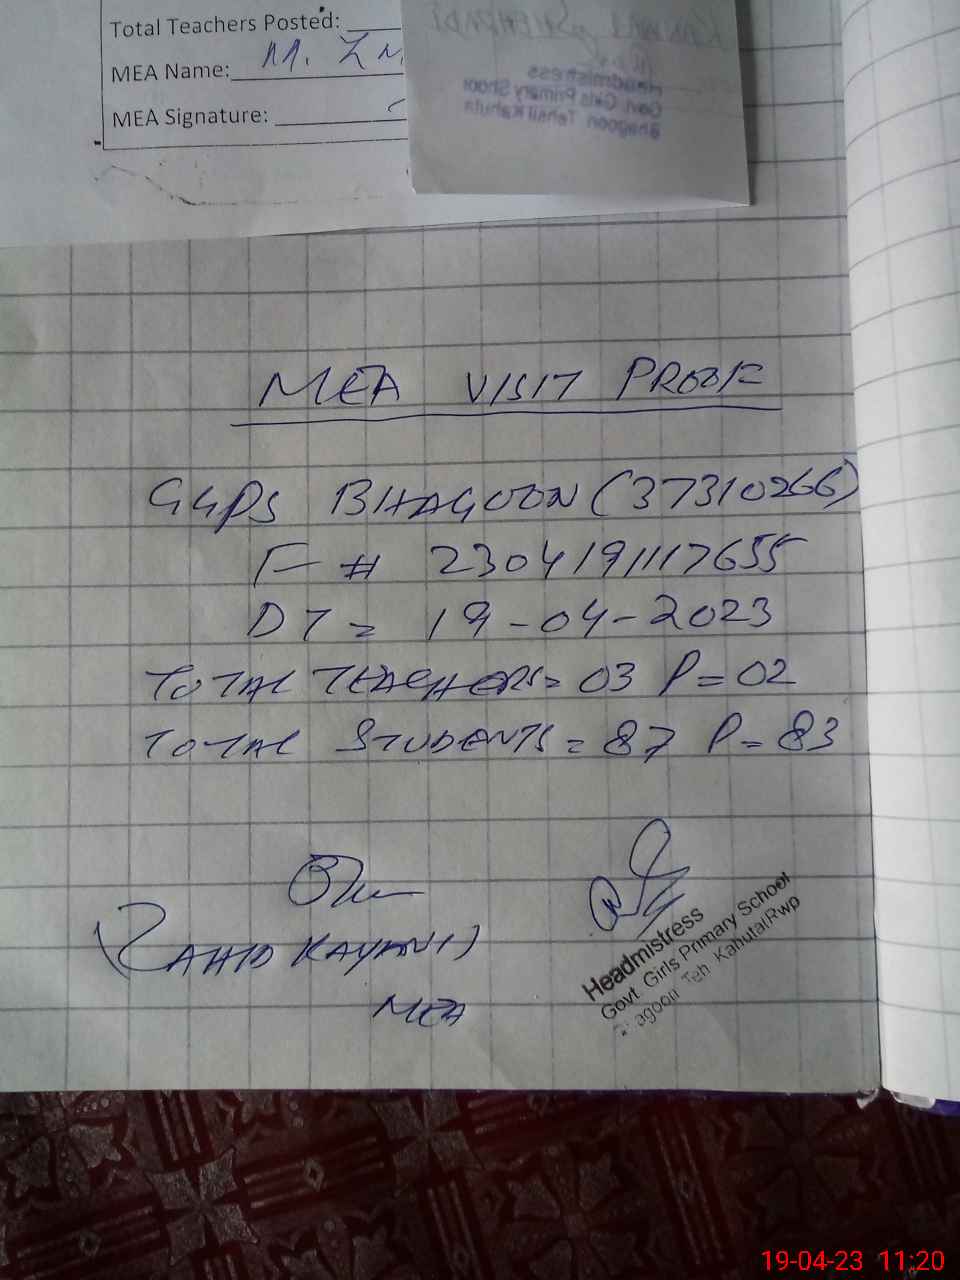 Total Teachers Posted:
MEA Name: M. Z
MEA Signature:
Headmistress
Govt. Girls Primary Shool
Bhagoon Tehsil Kahuta
MEA VISIT PROOF
GGPS BHAGOON (37310266)
F # 2304191117655
DT = 19-04-2023
TOTAL TEACHERS = 03 P = 02
TOTAL STUDENTS = 87 P = 83
(ZAHID KAYANI)
MEA
Headmistress
Govt Girls Primary School
Bhagoon Teh Kahuta/Rwp
19-04-23 11:20